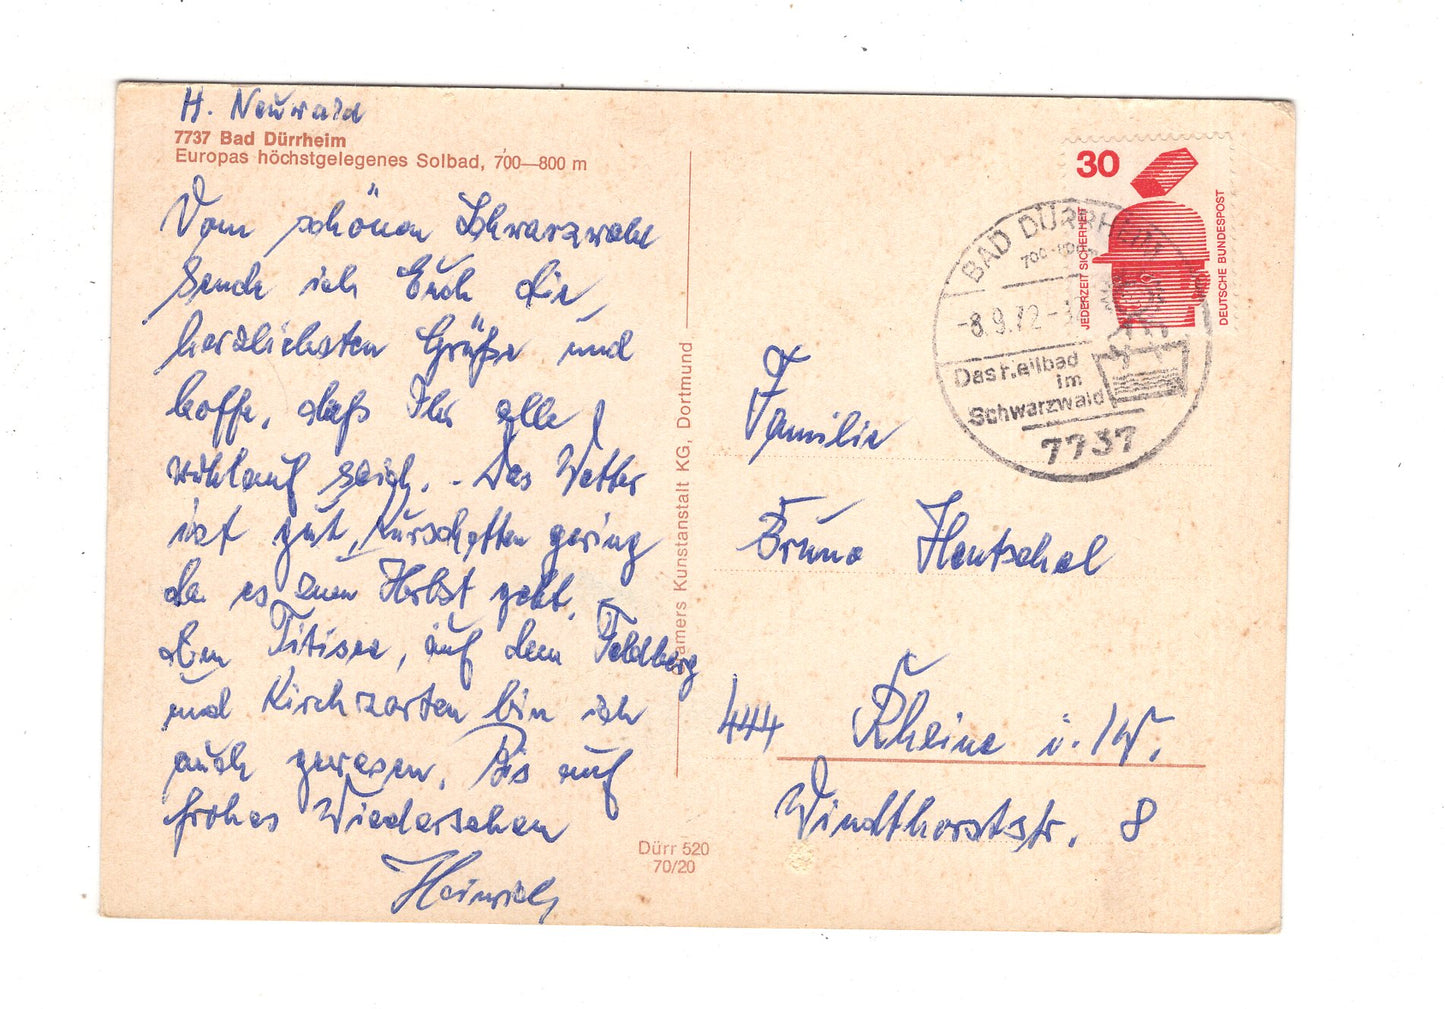 H. Neuwald
7737 Bad Dürrheim
Europas höchstgelegenes Solbad, 700—800 m
Vom schönen Schwarzwald
sende ich Euch die
herzlichsten Grüße und
hoffe, daß Ihr alle
wohlauf seid. - Das Wetter
ist gut, Kurschatten gering
da es zum Herbst geht.
Am Titisee, auf dem Feldberg
und Kirchzarten bin ich
auch gewesen. Bis auf
frohes Wiedersehen
Heinrich
Dürr 520
70/20
Cramers Kunstanstalt KG, Dortmund
30
JEDERZEIT SICHERHEIT
DEUTSCHE BUNDESPOST
BAD DÜRRHEIM
-8.9.72-
Das Heilbad
im
Schwarzwald
7737
Familie
Bruno Hentschel
444 Rheine i. W.
Windthorststr. 8